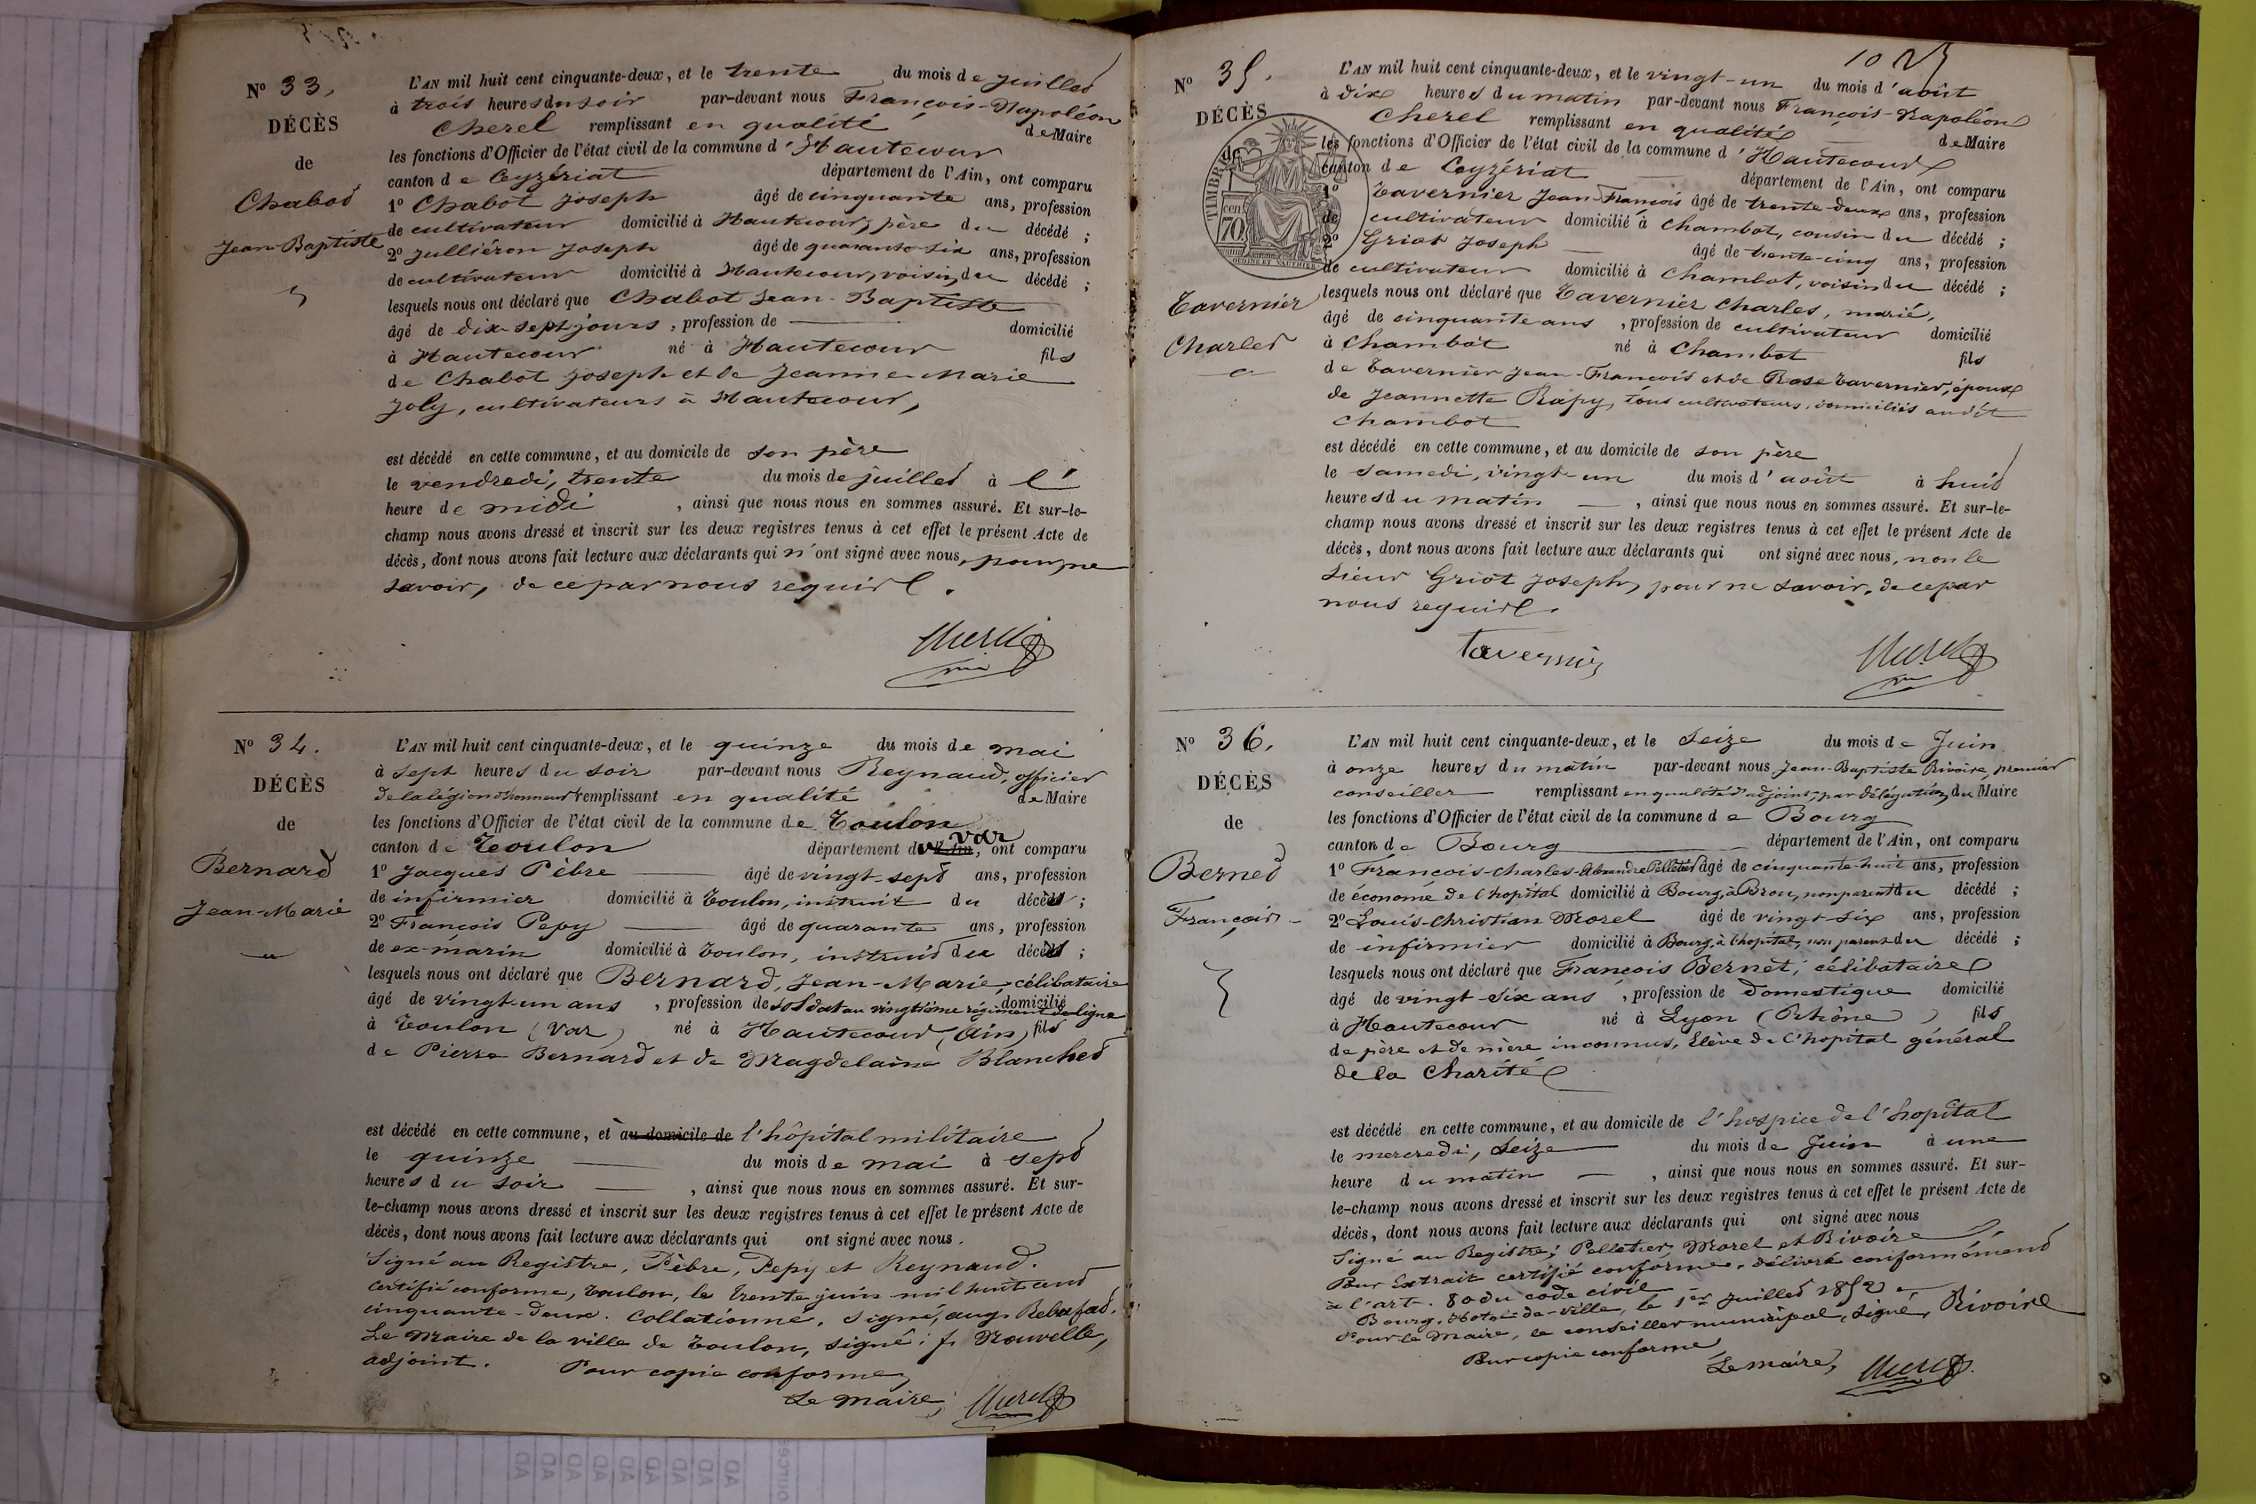 N° 33.
DÉCÈS
de
Chabot
Jean-Baptiste
L'AN mil huit cent cinquante-deux, et le trente du mois de juillet
à trois heures du soir par-devant nous François-Napoléon
Cherel remplissant en qualité de Maire
les fonctions d'Officier de l'état civil de la commune d'Hautecour
canton de Ceyzériat département de l'Ain, ont comparu
1° Chabot Joseph âgé de cinquante ans, profession
de cultivateur domicilié à Hautecour, père du décédé ;
2° Julliéron Joseph âgé de quarante-six ans, profession
de cultivateur domicilié à Hautecour, voisin du décédé ;
lesquels nous ont déclaré que Chabot Jean-Baptiste
âgé de dix-sept jours, profession de domicilié
à Hautecour né à Hautecour fils
de Chabot Joseph et de Jeanne Marie
Joly, cultivateurs à Hautecour,
est décédé en cette commune, et au domicile de son père
le vendredi, trente du mois de juillet à l'
heure de midi, ainsi que nous nous en sommes assuré. Et sur-le-
champ nous avons dressé et inscrit sur les deux registres tenus à cet effet le présent Acte de
décès, dont nous avons fait lecture aux déclarants qui n'ont signé avec nous, pour ne
savoir, de ce par nous requis.
N° 34.
DÉCÈS
de
Bernard
Jean-Marie
L'AN mil huit cent cinquante-deux, et le quinze du mois de mai
à sept heures du soir par-devant nous Reynaud, officier
de la légion d'honneur remplissant en qualité de Maire
les fonctions d'Officier de l'état civil de la commune de Toulon
canton de Toulon département du var, ont comparu
1° Jacques Pèbre âgé de vingt-sept ans, profession
de infirmier domicilié à Toulon, instruit du décès ;
2° François Pepy âgé de quarante ans, profession
de ex-marin domicilié à Toulon, instruit du décès ;
lesquels nous ont déclaré que Bernard, Jean-Marie, célibataire
âgé de vingt-un ans, profession de soldat au vingtième régiment de ligne domicilié
à Toulon (var) né à Hautecour (Ain) fils
de Pierre Bernard et de Magdelaine Blanchet
est décédé en cette commune, et à au domicile de l'hôpital militaire
le quinze du mois de mai à sept
heures du soir, ainsi que nous nous en sommes assuré. Et sur-
le-champ nous avons dressé et inscrit sur les deux registres tenus à cet effet le présent Acte de
décès, dont nous avons fait lecture aux déclarants qui ont signé avec nous.
Signé au Registre, Pèbre, Pepy et Reynaud.
certifié conforme, Toulon, le trente juin mil huit cent
cinquante-deux. Collationné, signé, aug. Rebufat.
Le Maire de la ville de Toulon, signé : f. Nouvelle,
adjoint. Pour copie conforme,
Le maire,
10
N° 35.
DÉCÈS
de
TIMBRE
cen.
70
Tavernier
Charles
L'AN mil huit cent cinquante-deux, et le vingt-un du mois d'août
à dix heures du matin par-devant nous François-Napoléon
Cherel remplissant en qualité de Maire
les fonctions d'Officier de l'état civil de la commune d'Hautecour
canton de Ceyzériat département de l'Ain, ont comparu
1° Tavernier Jean-François âgé de trente-deux ans, profession
de cultivateur domicilié à Chambot, cousin du décédé ;
2° Griot Joseph âgé de trente-cinq ans, profession
de cultivateur domicilié à Chambot, voisin du décédé ;
lesquels nous ont déclaré que Tavernier Charles, marié,
âgé de cinquante ans, profession de cultivateur domicilié
à Chambot né à Chambot fils
de Tavernier Jean-François et de Rose Tavernier, époux
de Jeannette Rapy, tous cultivateurs, domiciliés au dit
Chambot
est décédé en cette commune, et au domicile de son père
le samedi, vingt-un du mois d'août à huit
heures du matin, ainsi que nous nous en sommes assuré. Et sur-le-
champ nous avons dressé et inscrit sur les deux registres tenus à cet effet le présent Acte de
décès, dont nous avons fait lecture aux déclarants qui ont signé avec nous, non le
sieur Griot Joseph, pour ne savoir, de ce par
nous requis.
Tavernier
N° 36.
DÉCÈS
de
Bernet
François
L'AN mil huit cent cinquante-deux, et le seize du mois de Juin
à onze heures du matin par-devant nous Jean-Baptiste Rivoire, premier
conseiller remplissant en qualité d'adjoint, par délégation du Maire
les fonctions d'Officier de l'état civil de la commune de Bourg
canton de Bourg département de l'Ain, ont comparu
1° François-Charles-Alexandre Pelletier âgé de cinquante-huit ans, profession
de économe de l'hopital domicilié à Bourg, à Brou, non parent du décédé ;
2° Louis-Christian Morel âgé de vingt-six ans, profession
de infirmier domicilié à Bourg, à l'hopital, non parent du décédé ;
lesquels nous ont déclaré que François Bernet, célibataire
âgé de vingt-six ans, profession de domestique domicilié
à Hautecour né à Lyon (Rhône) fils
de père et de mère inconnus, Elève de l'hopital général
de la Charité
est décédé en cette commune, et au domicile de l'hospice de l'hopital
le mercredi, seize du mois de Juin à une
heure du matin, ainsi que nous nous en sommes assuré. Et sur-
le-champ nous avons dressé et inscrit sur les deux registres tenus à cet effet le présent Acte de
décès, dont nous avons fait lecture aux déclarants qui ont signé avec nous
Signé au Registre, Pelletier, Morel et Rivoire
Pour Extrait certifié conforme, délivré conformément
à l'art. 80 du code civil
Bourg, Hotel-de-ville, le 1er Juillet 1852
Pour le Maire, le conseiller municipal, signé, Rivoire
Pour copie conforme
Le maire,